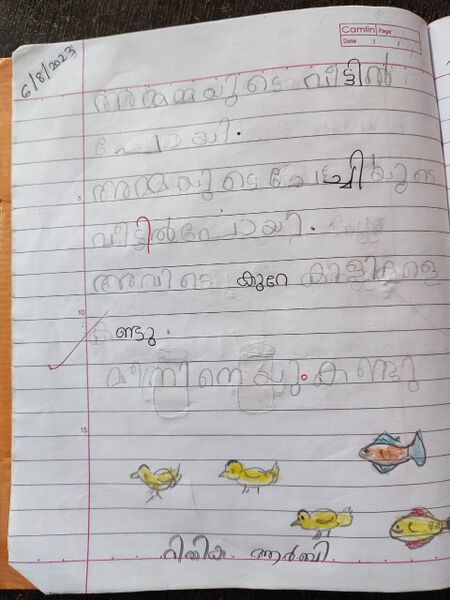 Camlin Page
Date / /
6/8/2023
അമ്മമ്മയുടെ വീട്ടിൽ
പോയി.
അമ്മയുടെ ചേച്ചിയുടെ
വീട്ടിൽ പോയി.
അവിടെ കുറേ കിളികളെ
കണ്ടു.
മീനിനെയും കണ്ടു
റിതിക ആർബി